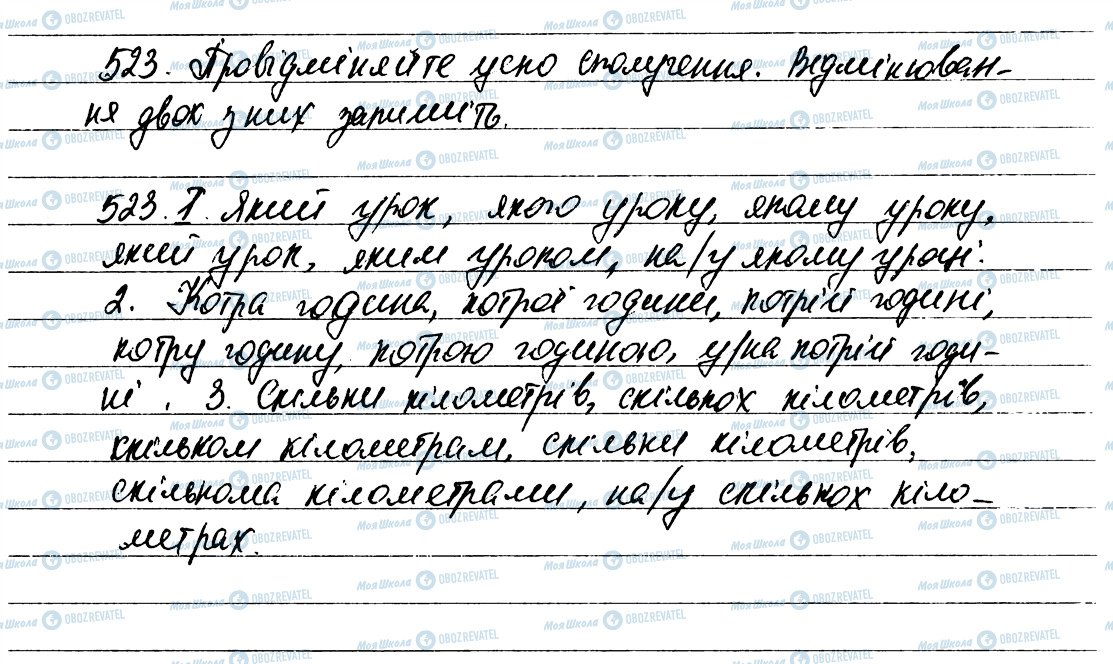 523. Провідміняйте усно сполучення. Відмінюван-
ня двох з них запишіть.
523. 1. Який урок, якого уроку, якому уроку,
який урок, яким уроком, на/у якому уроці.
2. Котра година, котрої години, котрій годині,
котру годину, котрою годиною, у/на котрій годи-
ні. 3. Скільки кілометрів, скількох кілометрів,
скільком кілометрам, скільки кілометрів,
скількома кілометрами, на/у скількох кіло-
метрах.